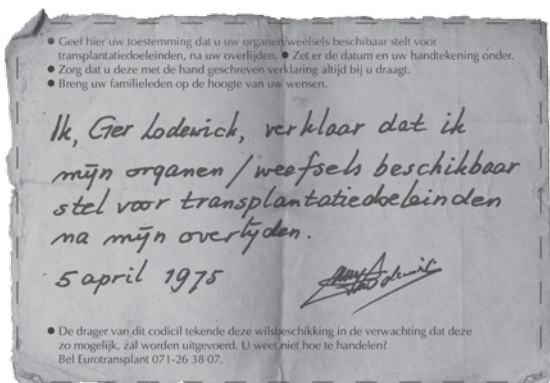 ● Geef hier uw toestemming dat u uw organen/weefsels beschikbaar stelt voor
transplantatiedoeleinden, na uw overlijden. ● Zet er de datum en uw handtekening onder.
● Zorg dat u deze met de hand geschreven verklaring altijd bij u draagt.
● Breng uw familieleden op de hoogte van uw wensen.
Ik, Ger Lodewick, verklaar dat ik
mijn organen / weefsels beschikbaar
stel voor transplantatiedoeleinden
na mijn overlijden.
5 april 1975
● De drager van dit codicil tekende deze wilsbeschikking in de verwachting dat deze
zo mogelijk, zal worden uitgevoerd. U weet niet hoe te handelen?
Bel Eurotransplant 071-26 38 07.